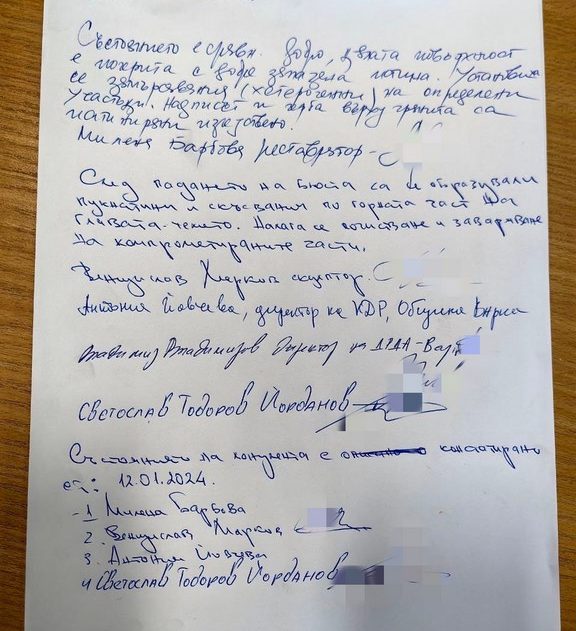 Състоянието е сравн. добро, цялата повърхност
е покрита с добре запазена патина. Установиха
се замърсявания (хетерогенни) на определени
участъци. Надписът и герба върху гранита са
патинирани изкуствено.
Милена Барбова реставратор -
След падането на бюста са се образували
пукнатини и скъсвания по горната част на
главата-челото. Налага се почистване и заваряване
на компрометираните части.
Венцислав Марков скулптор
Антония Йовчева, директор на КДР, Община Варна
Владимир Владимиров Директор на ДДА-Варна
Светослав Тодоров Йорданов
Състоянието на паметника е констатирано
от: 12.01.2024.
- 1 Милена Барбова
2. Венцислав Марков
3. Антония Йовчева
4 Светослав Тодоров Йорданов